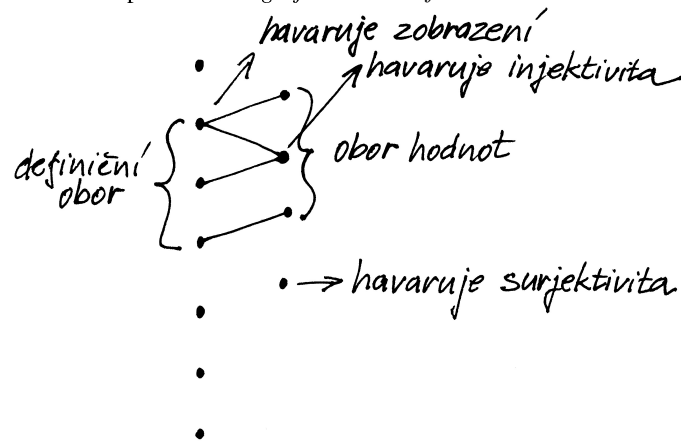 havaruje zobrazení
havaruje injektivita
definiční
obor
obor hodnot
havaruje surjektivita